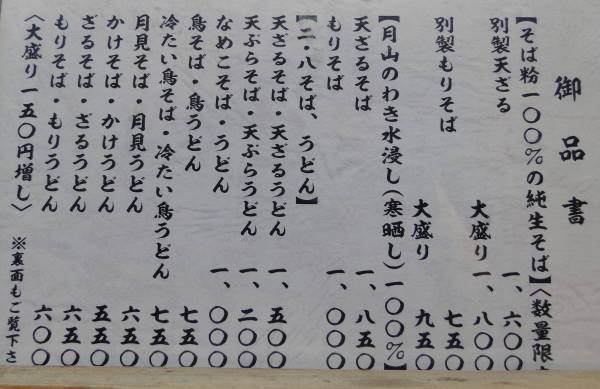 御品書
【そば粉一〇〇%の純生そば】〈数量限
別製天ざる 一、六〇〇
大盛り 一、八〇〇
別製もりそば 七五〇
大盛り 九五〇
【月山のわき水浸し(寒晒し)一〇〇%】
天ざるそば 一、八五〇
もりそば 一、〇〇〇
【二・八そば、うどん】
天ざるそば・天ざるうどん 一、五〇〇
天ぷらそば・天ぷらうどん 一、二〇〇
なめこそば・うどん 一、〇〇〇
鳥そば・鳥うどん 七五〇
冷たい鳥そば・冷たい鳥うどん 七五〇
月見そば・月見うどん 六五〇
かけそば・かけうどん 五五〇
ざるそば・ざるうどん 六五〇
もりそば・もりうどん 六〇〇
〈大盛り一五〇円増し〉
※裏面もご覧下さ